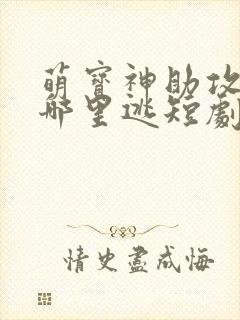 萌寶神助攻
哪里逃短劇
情史盡成悔